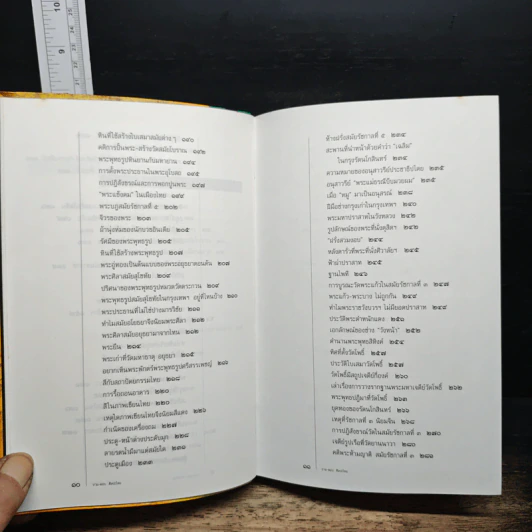 หินที่ใช้สร้างใบเสมาสมัยต่างๆ ๑๙๐
คติการปั้นพระ-สร้างวัดสมัยโบราณ ๑๙๒
พระพุทธรูปหินยานกับมหายาน ๑๙๔
การตั้งพระประธานในพระอุโบสถ ๑๙๕
การปฏิสังขรณ์และการพอกปูนพระ ๑๙๗
"พระแข้งคม" ในเมืองไทย ๑๙๙
พระบฏสมัยรัชกาลที่ ๕ ๒๐๒
จีวรของพระ ๒๐๓
ผ้านุ่งห่มของนักบวชอินเดีย ๒๐๕
รัศมีของพระพุทธรูป ๒๐๕
หินที่ใช้สร้างพระพุทธรูป ๒๐๗
พระศิลาสมัยสุโขทัย ๒๐๙
พระพุทธรูปสมัยสุโขทัยในกรุงเทพฯ อยู่ที่ไหนบ้าง ๒๑๐
พระประธานที่ไม่ใช่ปางมารวิชัย ๒๑๐
พระศิลาสมัยอยุธยามาจากไหน ๒๑๔
พระยืน ๒๑๔
พระเก่าที่วัดมหาธาตุ อยุธยา ๒๑๕
สีกับสถาปัตยกรรมไทย ๒๑๘
การรื้อถอนอาคาร ๒๒๐
สีในภาพเขียนไทย ๒๒๐
เหตุใดภาพเขียนไทยจึงนิยมสีแดง ๒๒๖
กำเนิดของเครื่องถม ๒๒๗
ประตู-หน้าต่างประดับมุก ๒๒๘
ลายรดน้ำมีมาแต่สมัยใด ๒๓๐
ประตูเมือง ๒๓๓
๑๐
ช้างฝรั่งสมัยรัชกาลที่ ๕ ๒๓๔
สะพานที่นำหน้าด้วยคำว่า "เฉลิม"
ในกรุงรัตนโกสินทร์ ๒๓๔
ความหมายของอนุสาวรีย์ประชาธิปไตย ๒๓๕
อนุสาวรีย์ "พระแม่ธรณีบีบมวยผม" ๒๓๕
เมื่อ "หมู" มาเป็นอนุสรณ์ ๒๓๘
ฝีมือช่างกรุงเก่าในกรุงเทพฯ ๒๔๐
พระมหาปราสาทในวังหลวง ๒๔๐
รูปลักษณ์ของพระที่นั่งดุสิตฯ ๒๔๒
"ปรังสามยอด" ๒๔๔
หลังคารั่วที่พระที่นั่งศิวาลัยฯ ๒๔๕
ศิวาปราสาท ๒๔๕
ฐานไพที ๒๔๖
การบูรณะวัดพระแก้วในสมัยรัชกาลที่ ๓ ๒๔๗
พระแก้ว-พระบาง ไม่ถูกกัน ๒๔๙
ทำไมพระราชวังบวรฯ ไม่มียอดปราสาท ๒๔๙
ประวัติพระตำหนักแดง ๒๕๐
เอกลักษณ์ของช่าง "วังหน้า" ๒๕๒
ตำนานพระพุทธสิหิงค์ ๒๕๔
ทิศที่ตั้งวัดโพธิ์ ๒๕๗
ประวัติใบเสมาวัดโพธิ์ ๒๕๗
วัดโพธิ์มีสถูปเจดีย์กี่องค์ ๒๖๐
เล่าเรื่องการวางรากฐานพระมหาเจดีย์วัดโพธิ์ ๒๖๒
พระพุทธปฏิมาที่วัดโพธิ์ ๒๖๓
ยุคทองของรัตนโกสินทร์ ๒๖๖
เหตุที่รัชกาลที่ ๓ นิยมจีน ๒๖๘
การปฏิสังขรณ์วัดในสมัยรัชกาลที่ ๓ ๒๗๐
เจดีย์รูปเรือที่วัดยานนาวา ๒๘๐
๑๑